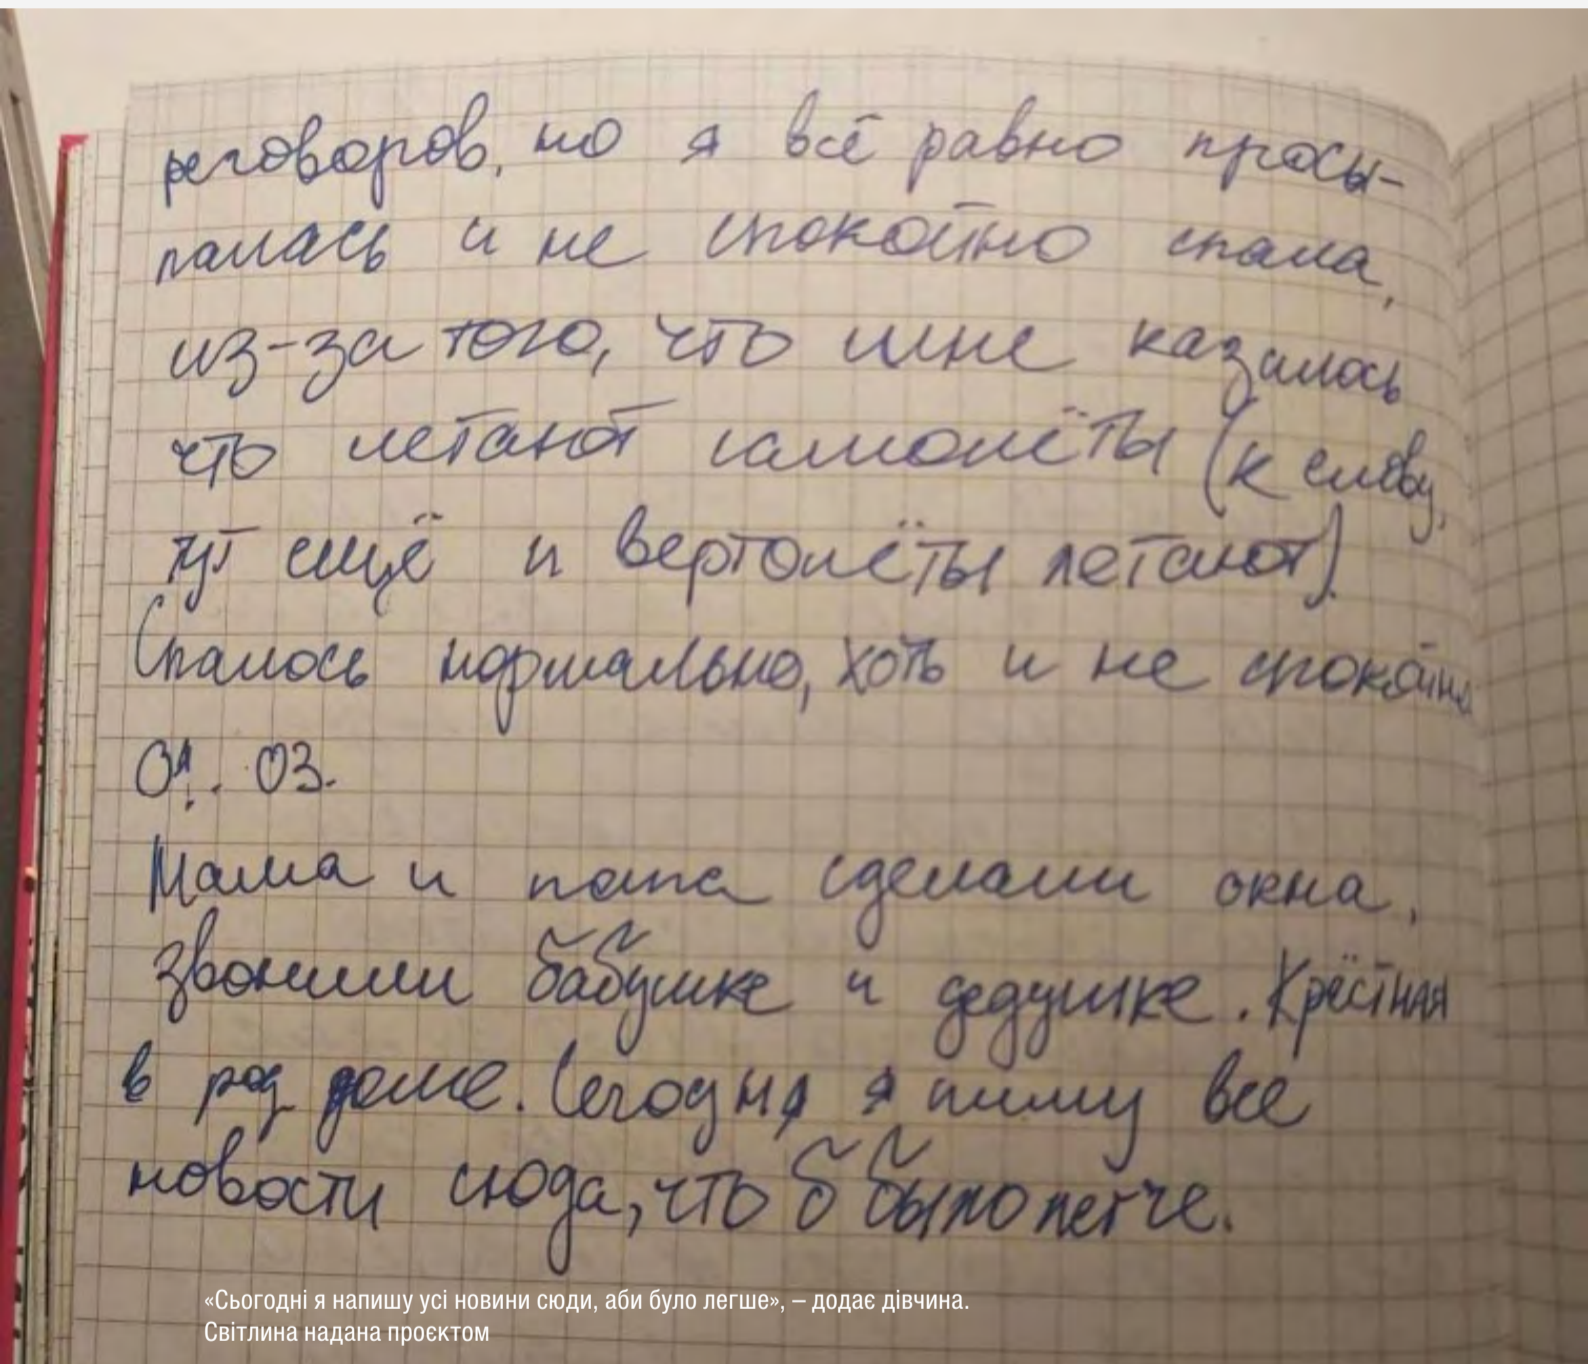 реговоров, но я всё равно просы-
палась и не спокойно спала,
из-за того, что мне казалось
что летают самолёты (к слову,
тут ещё и вертолёты летают).
Спалось нормально, хоть и не спокойно
01. 03.
Мама и папа сделали окна,
звонили бабушке и дедушке. Крёстная
в род доме. Сегодня я пишу все
новости сюда, что б было легче.
«Сьогодні я напишу усі новини сюди, аби було легше», – додає дівчина.
Світлина надана проєктом